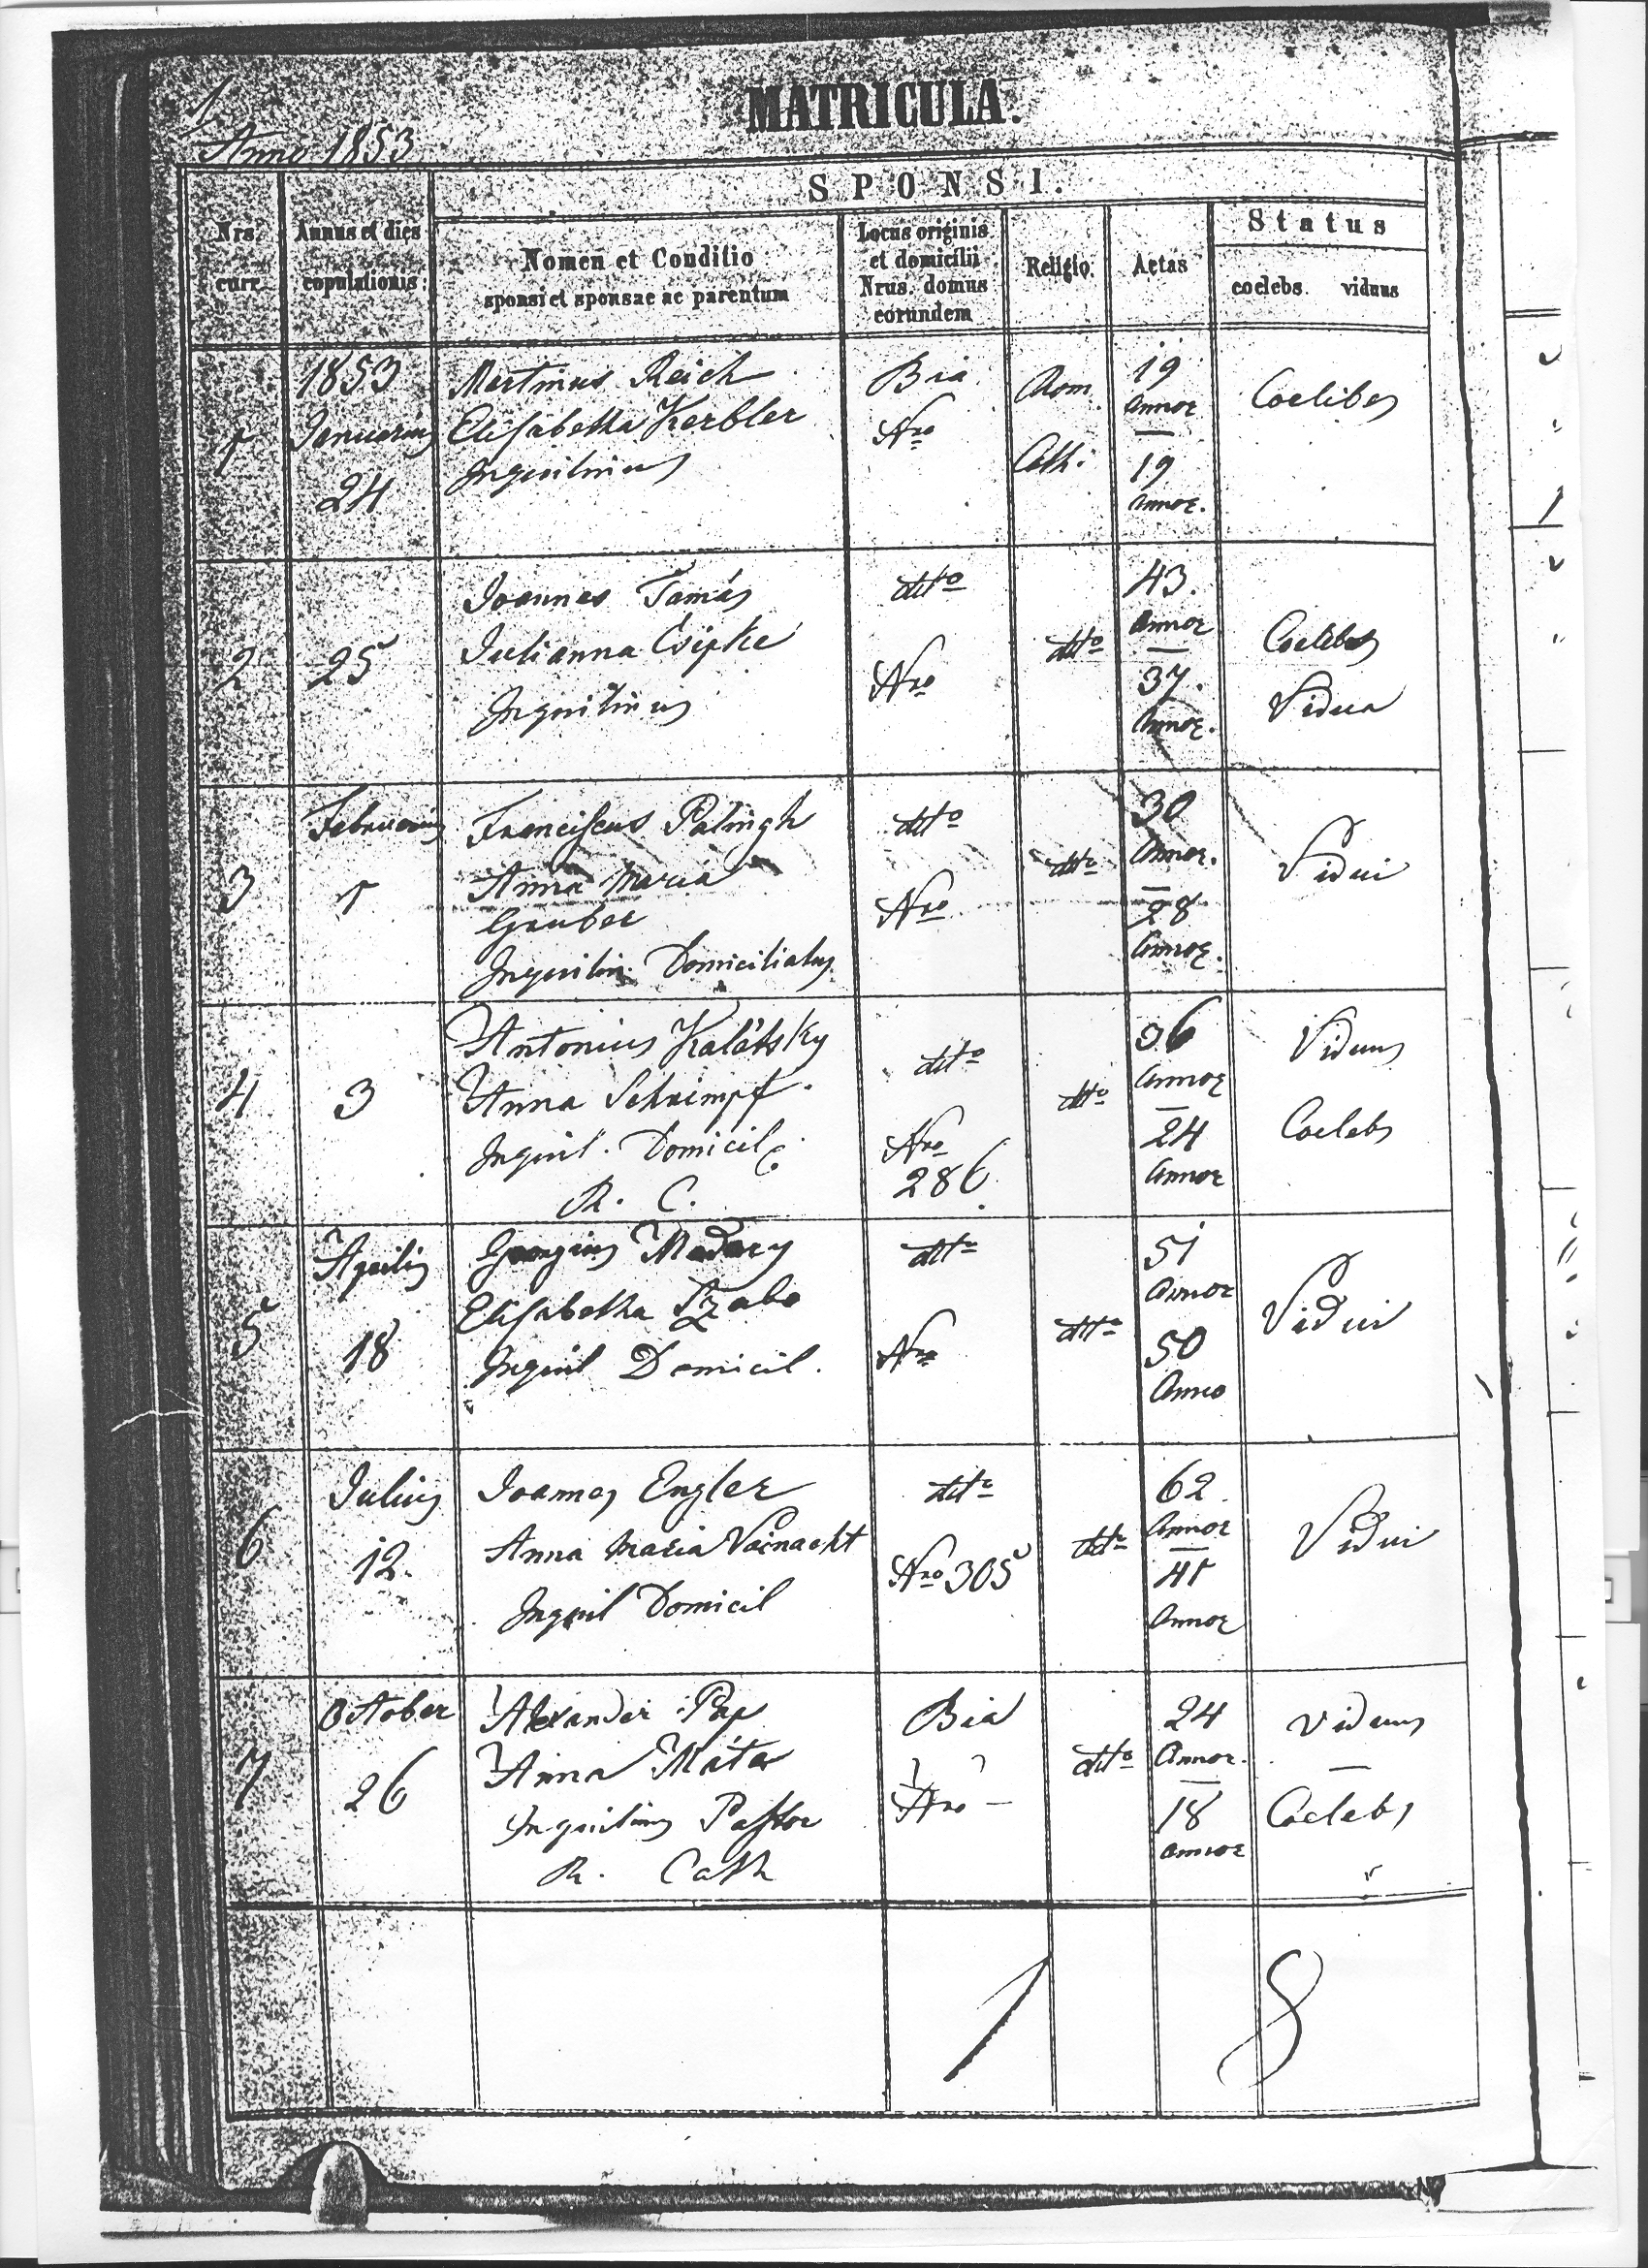 1.
Anno 1853
MATRICULA.
SPONSI.
Nrs. curr.
Annus et dies copulationis:
Nomen et Conditio
sponsi et sponsae ac parentum
Locus originis
et domicilii
Nrus. domus
eorundem
Religio.
Aetas
Status
coelebs. viduus
1
1853
Januarius
24
Martinus Reich
Elisabetha Kerbler
Inquilinus
Bia
Nro
Rom.
Cath:
19
annor
19
annor.
Coelibes
2
25
Joannes Tamás
Julianna Csipke
Inquilinus
ditto
Nro
ditto
43.
annor
37.
annor.
Coelebs
Vidua
3
Februarius
1
Franciscus Palingh
Anna Maria
Gruber
Inquilin. Domiciliatus
ditto
Nro
ditto
30
annor.
28
annor.
Vidui
4
3
Antonius Kalátsky
Anna Schrimpf
Inquil. Domicil.
R. C.
ditto
Nro
286.
ditto
36
annor
24
annor
Viduus
Coelebs
5
Aprilis
18
Georgius Madary
Elisabetha Szabo
Inquil Domicil.
ditto
Nro
ditto
51
annor
50
anno
Vidui
6
Julius
12.
Joannes Engler
Anna Maria Vainacht
Inquil Domicil
ditto
Nro 305
ditto
62.
annor
41
annor
Vidui
7
October
26
Alexander Pap
Anna Máte
Inquilinus Pastor
R. Cath
Bia
Nro —
ditto
24
annor.
18
annor
Viduus
Coelebs
1 8